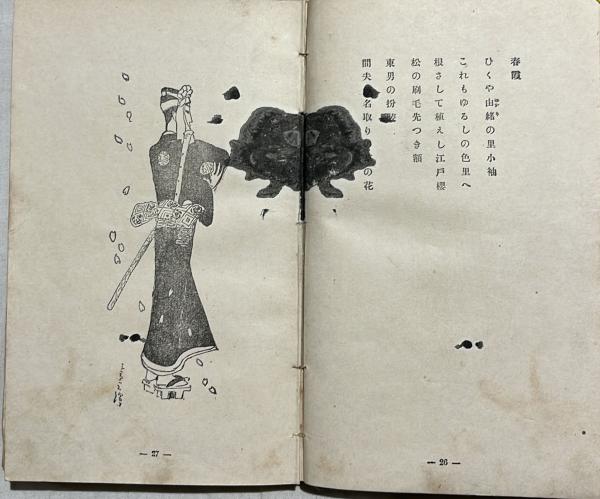 春霞
ひくや由緒の里小袖
ゆかり
これもゆるしの色里へ
根さして植えし江戸櫻
松の刷毛先つき額
東男の扮
間夫 名取り の花
— 26 —
— 27 —